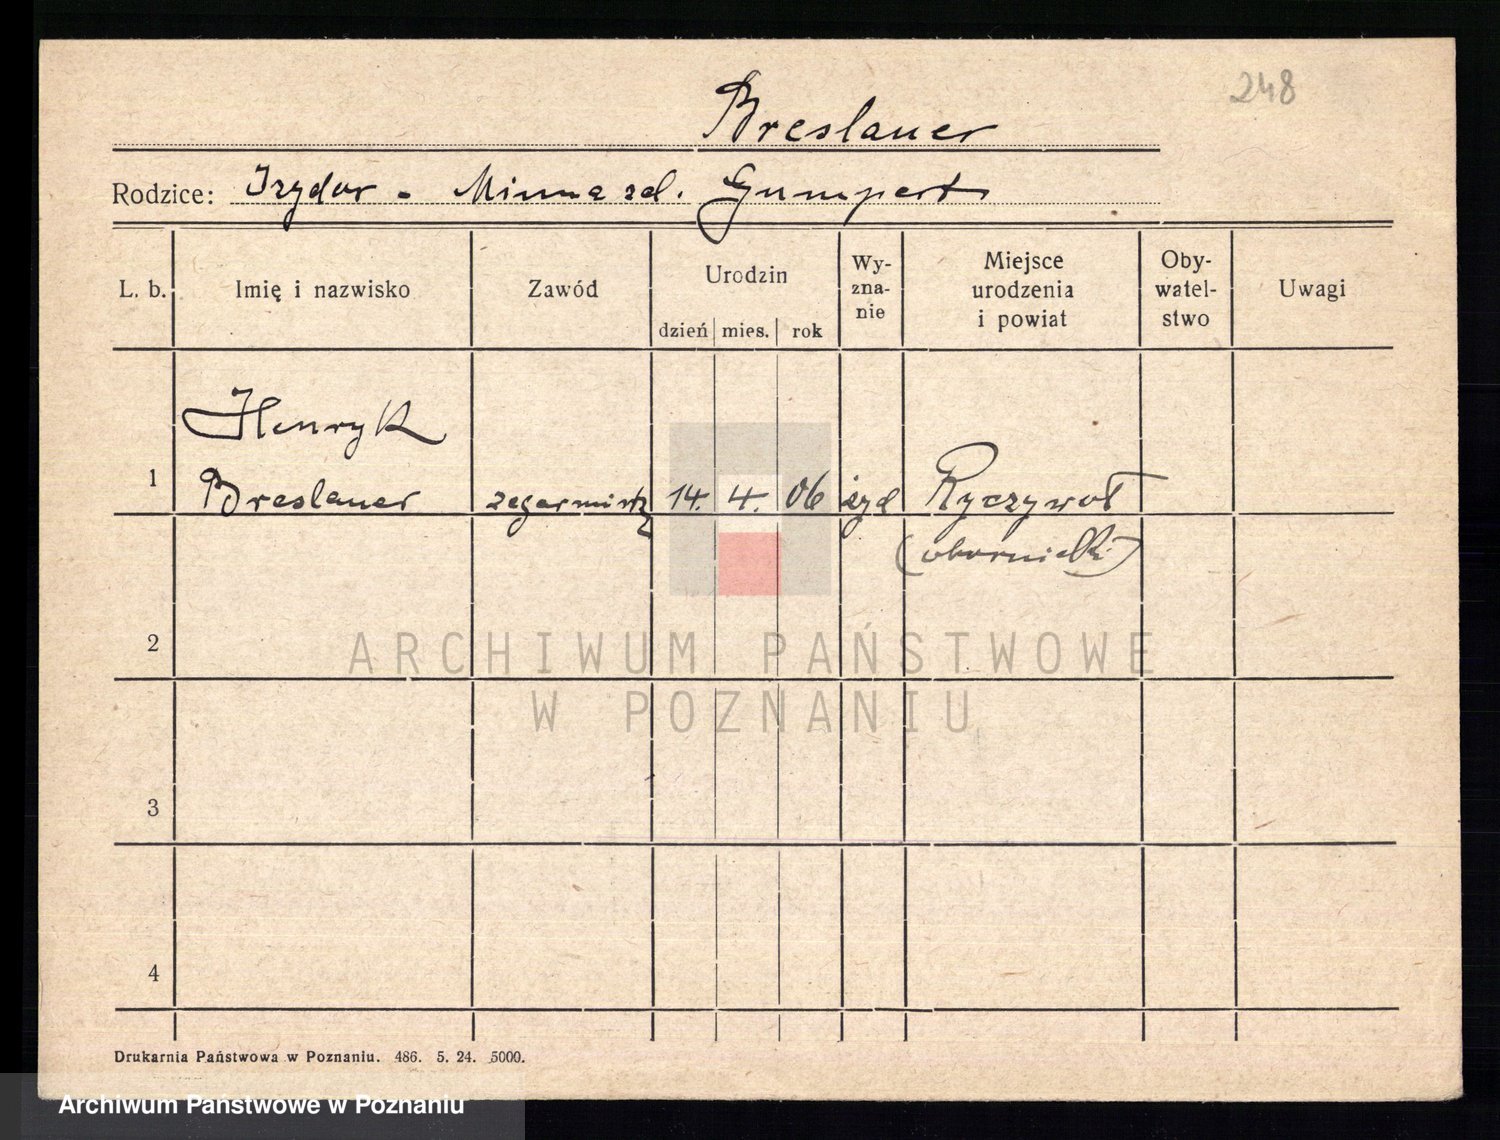 248
Breslauer
Rodzice: Izydor - Minna zd. Gumpert
L. b. Imię i nazwisko Zawód Urodzin dzień mies. rok Wy-zna-nie Miejsce urodzenia i powiat Oby-watel-stwo Uwagi
Henryk
1 Breslauer zegarmistrz 14. 4. 06 żyd Ryczywół
(obornicki)
2
ARCHIWUM PAŃSTWOWE
W POZNANIU
3
4
Drukarnia Państwowa w Poznaniu. 486. 5. 24. 5000.
Archiwum Państwowe w Poznaniu